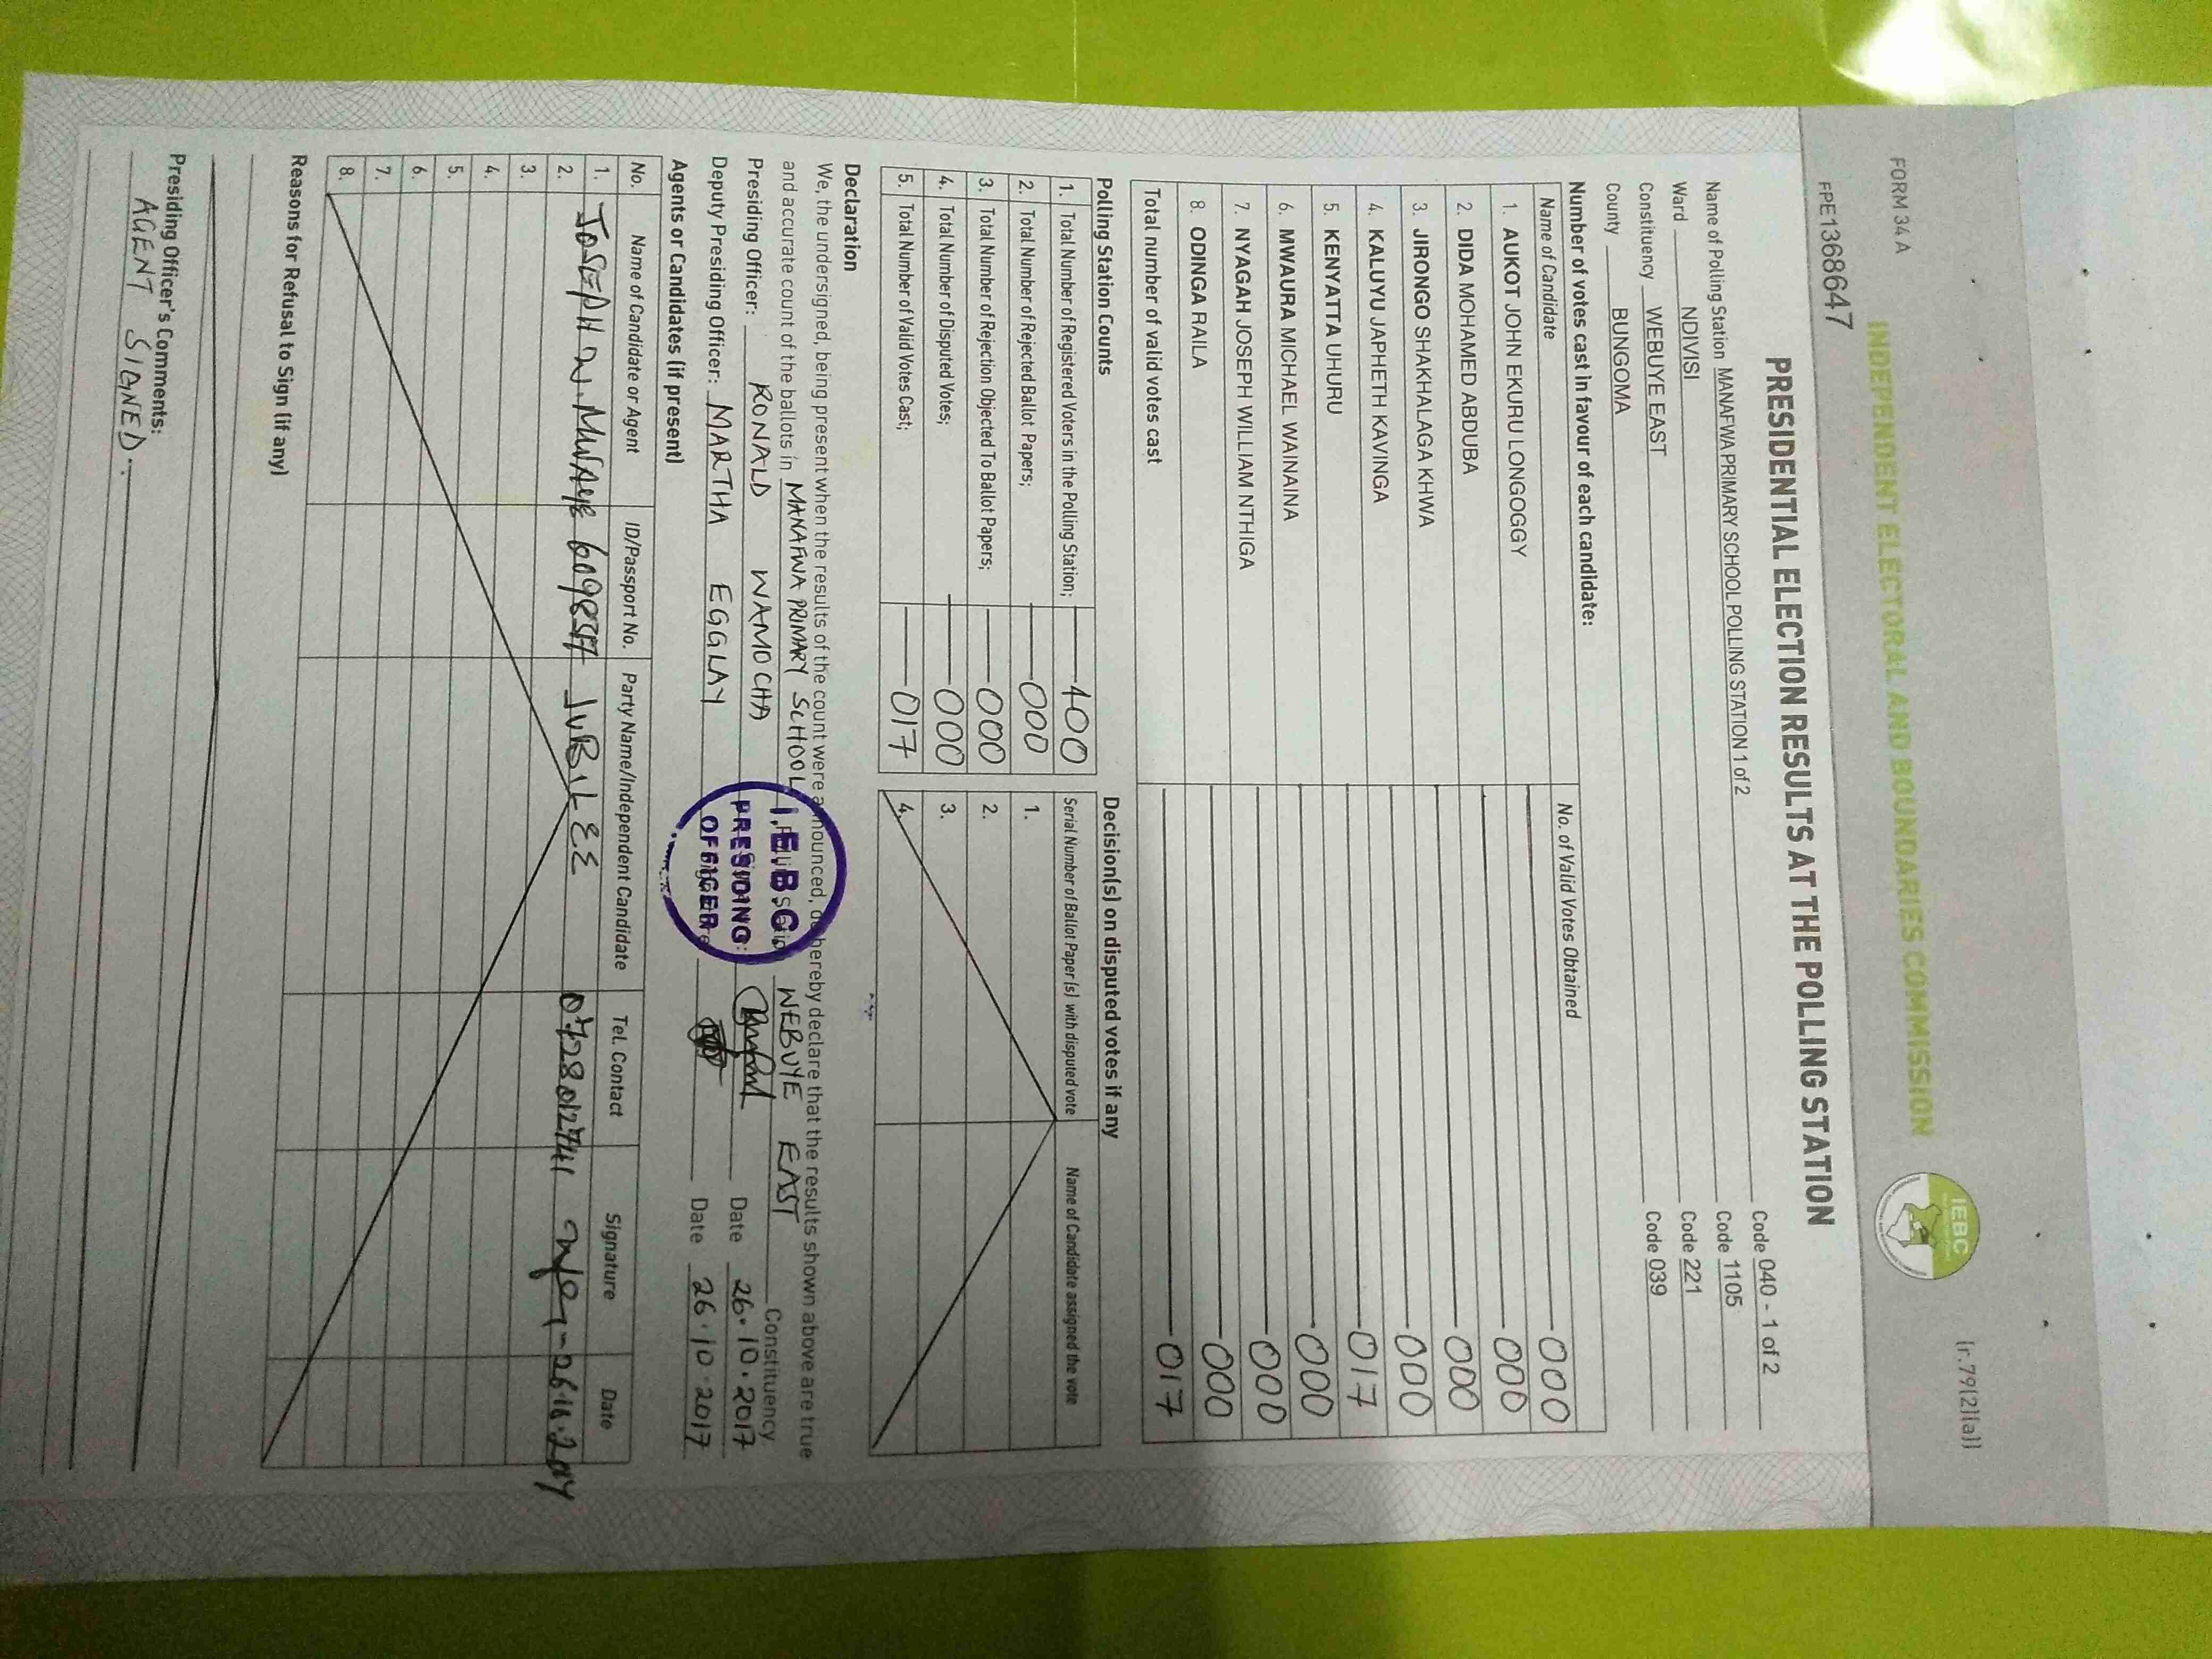 FORM 34 A
(r.79(2)(a))
INDEPENDENT ELECTORAL AND BOUNDARIES COMMISSION
IEBC
FPE1368647
PRESIDENTIAL ELECTION RESULTS AT THE POLLING STATION
Name of Polling Station MANAFWA PRIMARY SCHOOL POLLING STATION 1 of 2 Code 040 - 1 of 2
Ward NDIVISI Code 1105
Constituency WEBUYE EAST Code 221
County BUNGOMA Code 039
Number of votes cast in favour of each candidate:
Name of Candidate No. of Valid Votes Obtained
1. AUKOT JOHN EKURU LONGOGGY 000
2. DIDA MOHAMED ABDUBA 000
3. JIRONGO SHAKHALAGA KHWA 000
4. KALUYU JAPHETH KAVINGA 000
5. KENYATTA UHURU 017
6. MWAURA MICHAEL WAINAINA 000
7. NYAGAH JOSEPH WILLIAM NTHIGA 000
8. ODINGA RAILA 000
Total number of valid votes cast 017
Polling Station Counts
1. Total Number of Registered Voters in the Polling Station; 400
2. Total Number of Rejected Ballot Papers; 000
3. Total Number of Rejection Objected To Ballot Papers; 000
4. Total Number of Disputed Votes; 000
5. Total Number of Valid Votes Cast; 017
Decision(s) on disputed votes if any
Serial Number of Ballot Paper (s) with disputed vote Name of Candidate assigned the vote
1.
2.
3.
4.
Declaration
We, the undersigned, being present when the results of the count were announced, do hereby declare that the results shown above are true
and accurate count of the ballots in MANAFWA PRIMARY SCHOOL WEBUYE EAST Constituency
Presiding Officer: RONALD WAMOCHA Date 26.10.2017
Deputy Presiding Officer: MARTHA EGGLAY Date 26.10.2017
I.E.B.C
PRESIDING
OFFICER
Agents or Candidates (if present)
No. Name of Candidate or Agent ID/Passport No. Party Name/Independent Candidate Tel. Contact Signature Date
1. JOSEPH JUBILEE
2.
3.
4.
5.
6.
7.
8.
Reasons for Refusal to Sign (if any)
Presiding Officer's Comments:
AGENT SIGNED.